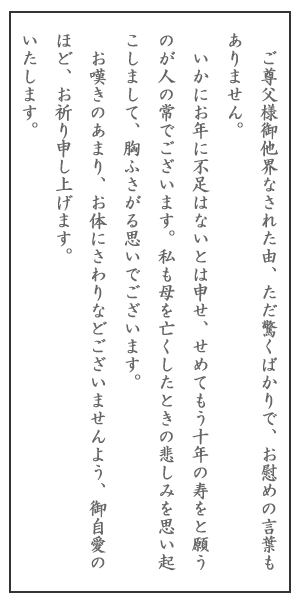 ご尊父様御他界なされた由、ただ驚くばかりで、お慰めの言葉も
ありません。
いかにお年に不足はないとは申せ、せめてもう十年の寿をと願う
のが人の常でございます。私も母を亡くしたときの悲しみを思い起
こしまして、胸ふさがる思いでございます。
お嘆きのあまり、お体にさわりなどございませんよう、御自愛の
ほど、お祈り申し上げます。
いたします。